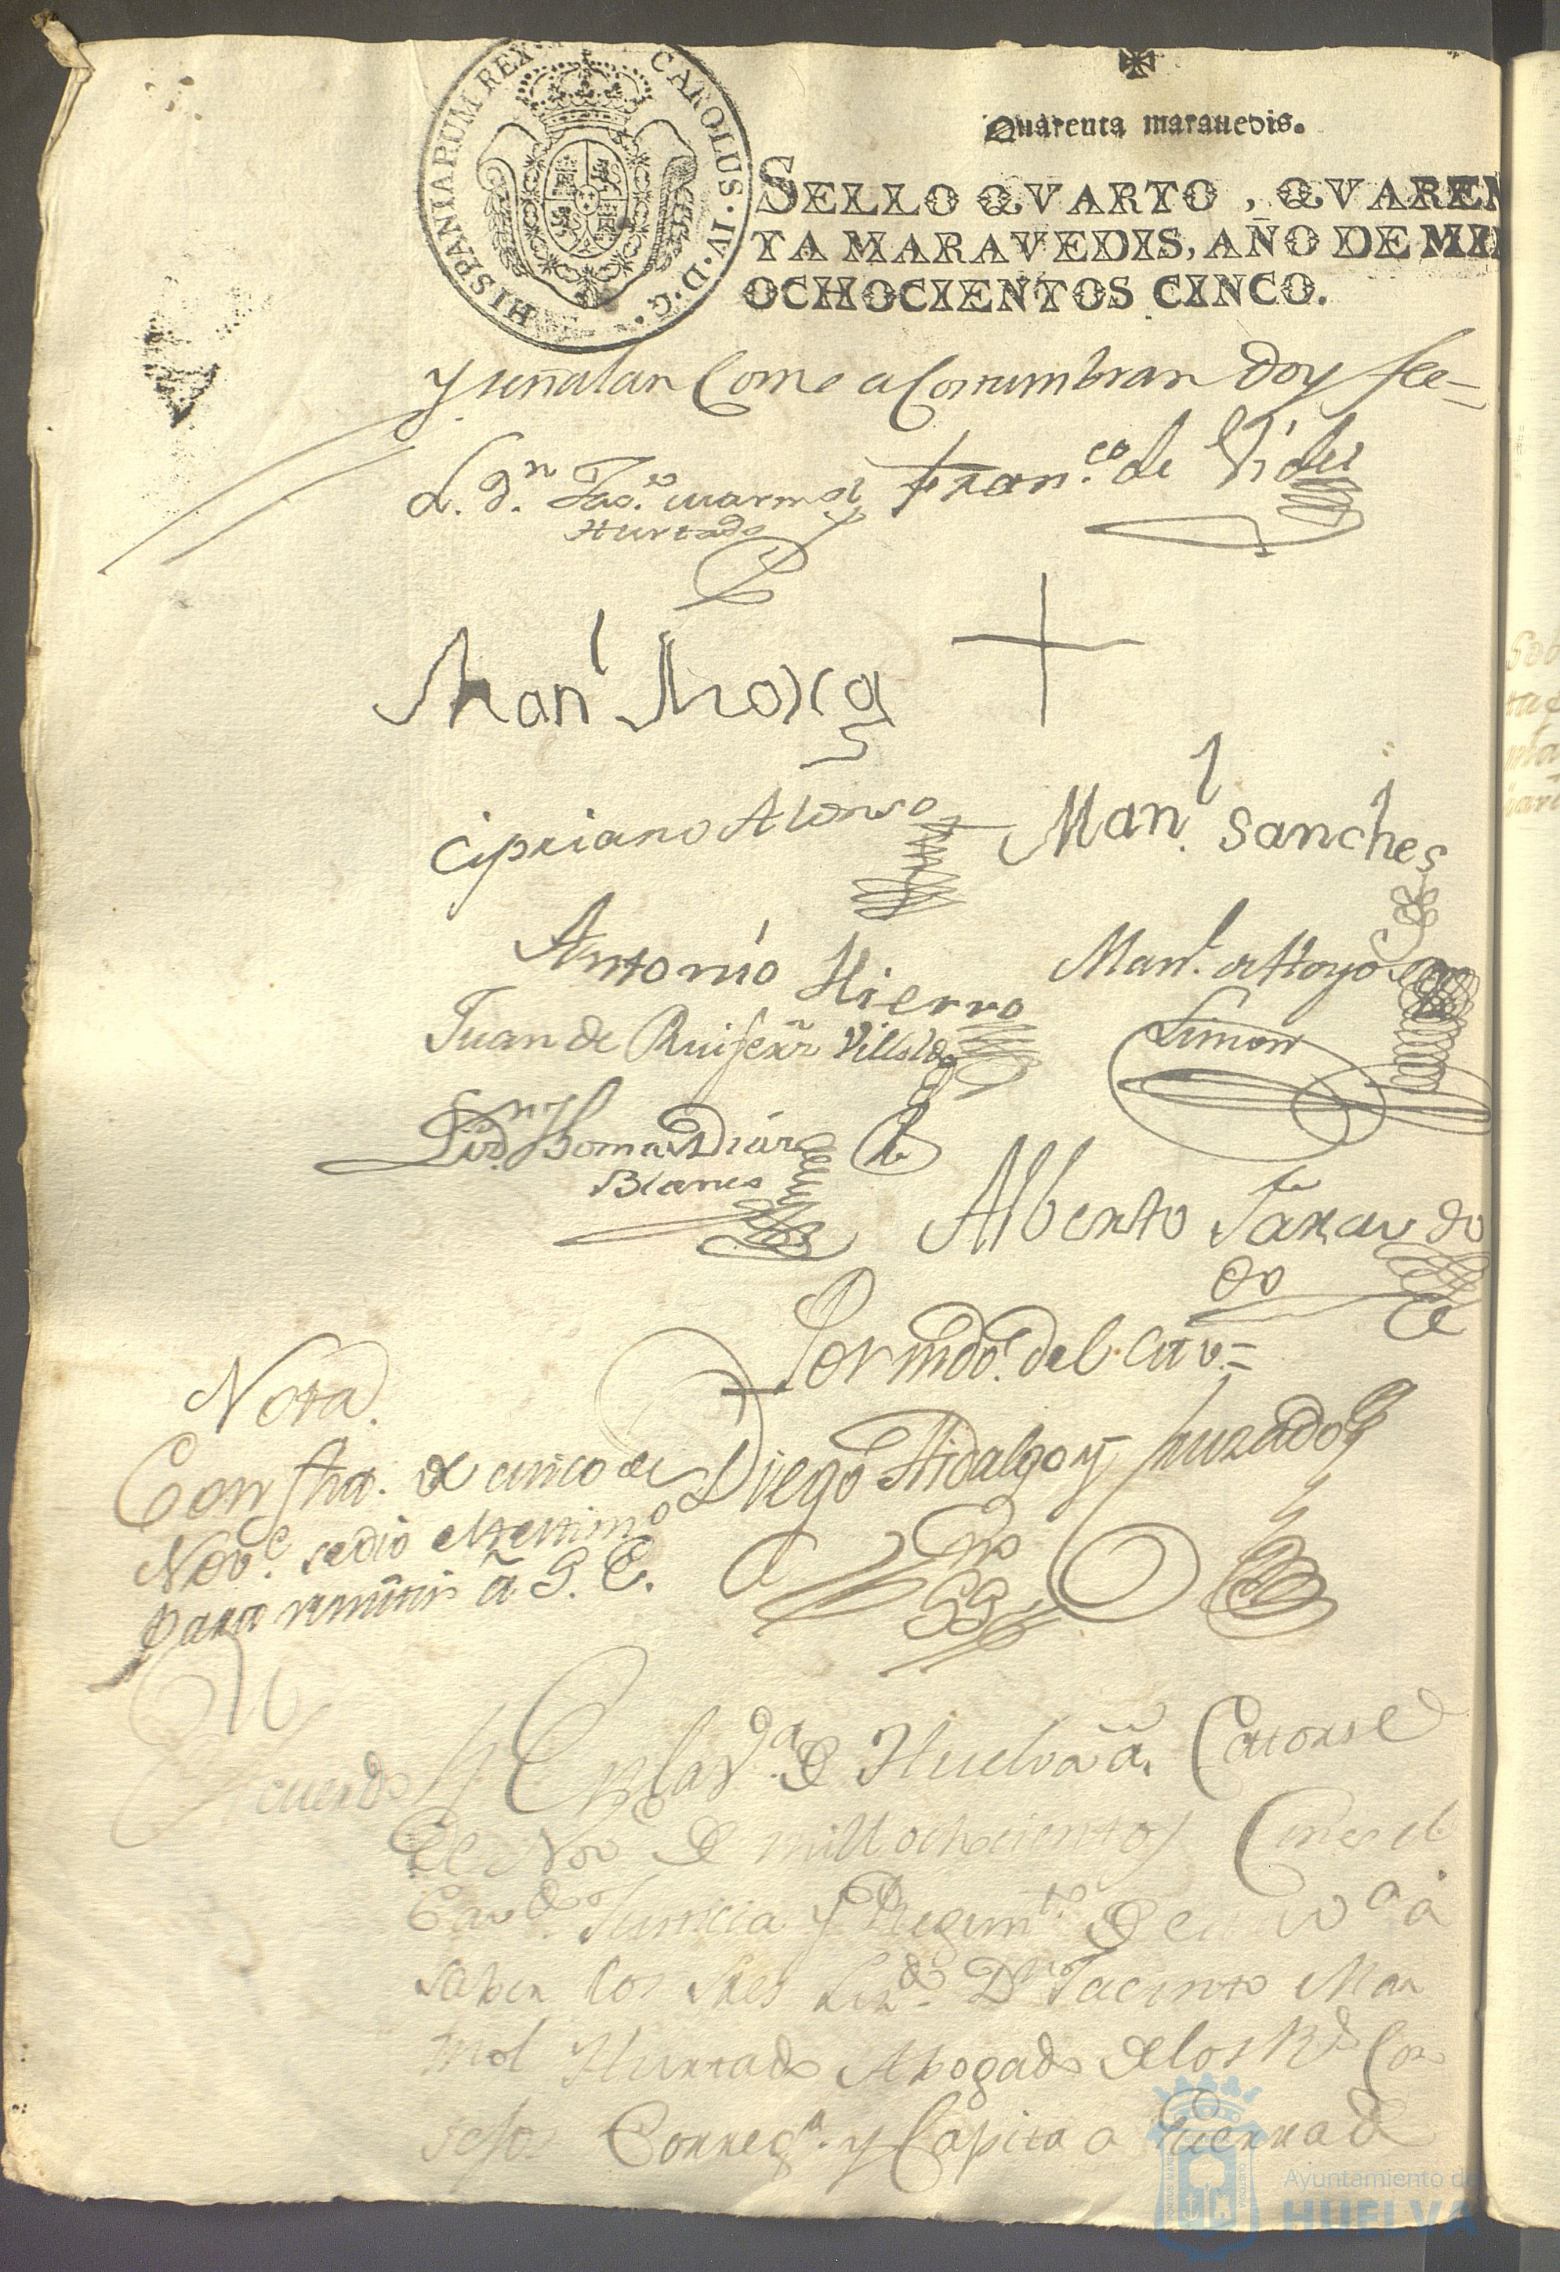 HISPANIARUM REX. CAROLUS. IV. D. G.
Quarenta maravedis.
SELLO QVARTO, QVAREN
TA MARAVEDIS, AÑO DE MIL
OCHOCIENTOS CINCO.
y señalan Como acostumbran Doy fee=
L. Dn. Jac.to Marmol
Hurtado
Fran.co de Vides
Man.l Mora
Cipriano Alonso
Man.l Sanches
Antonio Hierro
Man.l de Hoyo
Limon
Juan de
Lizd. Dn Thomas Diaz
Blanco
Alberto
Por mdo. del Cav.=
Diego Hidalgo y hurado
Nota.
Con fha. de cinco de
Nov.e se dio el testimo
para remitir a S. E.
Acuerdo
En la V.a de Huelva a Catorse
de Nov de mill ochocientos Cinco el
Cav.do Justicia y Regim.to de
saber los Sres Liz.do Dn Jacinto Mar
mol Hurtado Abogado de los R.s Con
sejos Correg.r y Capita a Guerra de
Ayuntamiento de
HUELVA